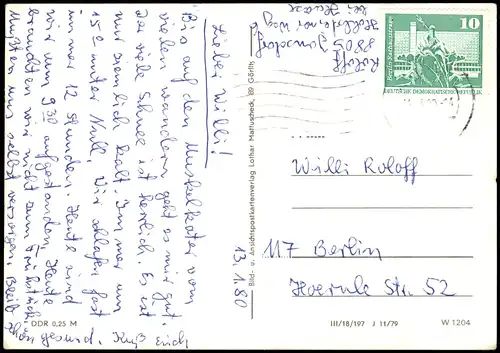 Lieber Willi!
Bis auf den Muskelkater vom
vielen wandern, geht es mir gut.
Der viele Schnee ist herrlich. Es ist
nur ziemlich kalt. Immer um
15° unter Null. Wir schlafen fast
immer 12 Stunden. Heute sind
wir um 9³⁰ aufgestanden. Heute
brauchten wir nicht zum Frühstück.
Mußten uns selbst versorgen. Bleib
schön gesund. Kuß
13.1.80
ODR 0,25 M
Bild- u. Ansichtspostkartenverlag Lothar Mattuscheck, 89 Görlitz
Roloff
8805 Jonsdorf
bei
10
Berlin · Rathausstrasse
DEUTSCHE DEMOKRATISCHE REPUBLIK
Willi Roloff
117 Berlin
Hoernle Str. 52
III/18/197 J 11/79
W 1204